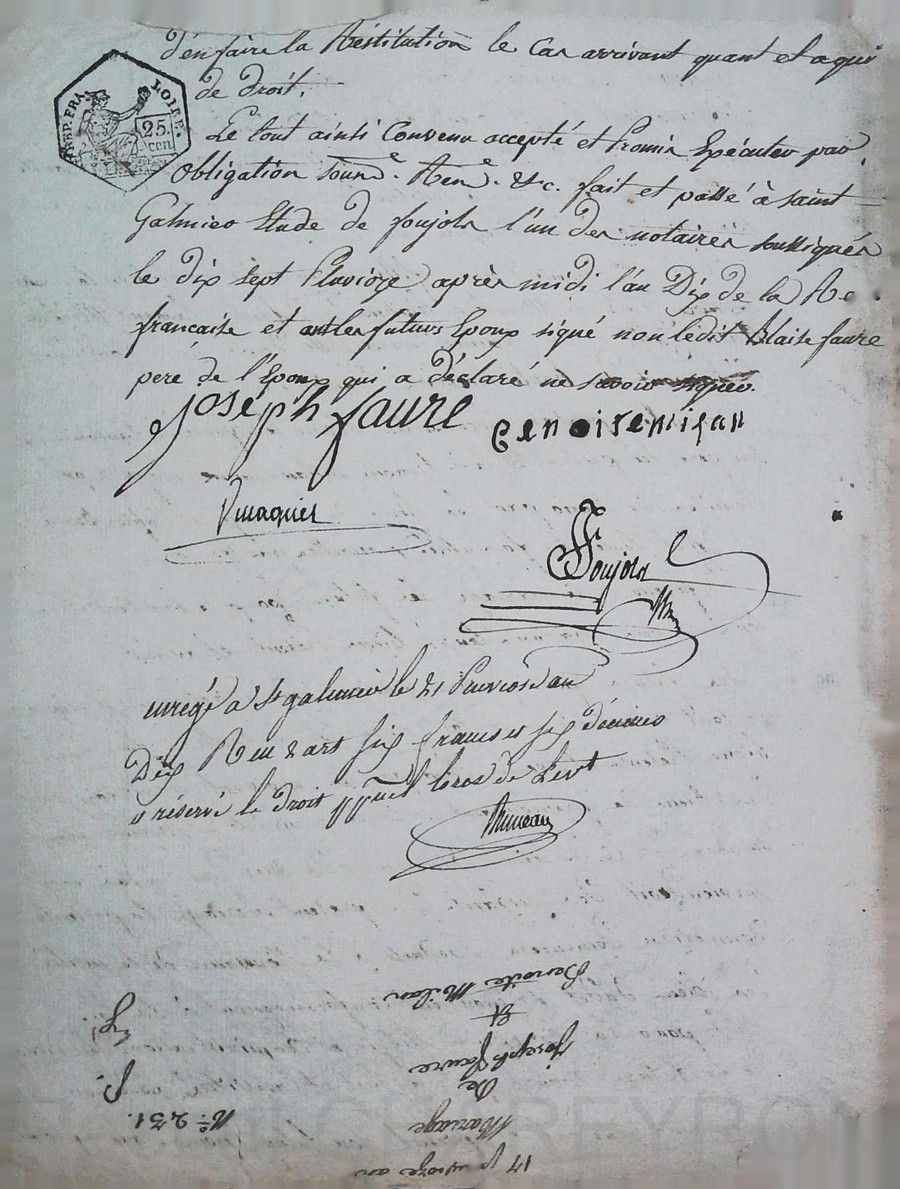 d'en faire la Restitution le Cas arrivant quant et a qui
de droit.
REP. FRA. LOIRE.
25.
cen
Le tout ainsi Convenu accepté et Promis Executer par
obligation Soumne. Rene. &c. fait et passé à saint
Galmier Etude de foujols l'un des notaires soussignés
le dix sept Pluviose après midi l'an Dix de la Re.
francaise et ont les futurs Epoux signé non ledit Blaise faure
pere de l'Epoux qui a déclaré ne savoir signer.
Joseph faure
Benoite milan
foujols
enregé a St galmier le 21 Pluviose an
Dix Reçu &
six francs et six décimes
réservé le droit
17 an
Mariage
De
Joseph faure
Et
Benoite Milan
No. 231.